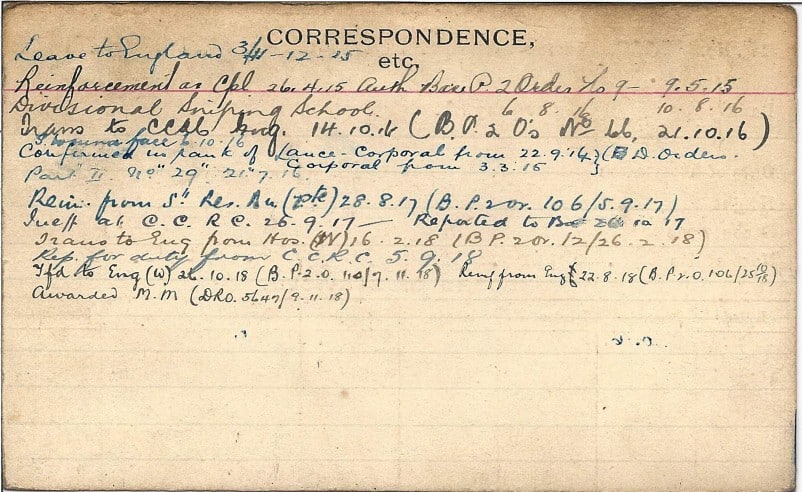 CORRESPONDENCE,
etc.
Leave to England 3/ -12-15
Reinforcement as Cpl 26.4.15 Auth Base P. 2 Order No 9 - 9.5.15
Divisional Sniping School. 6.8.16 10.8.16
Trans to CCAC Eng. 14.10.16 (B.P. 2 O's No 66, 21.10.16)
S. Wound face 6.10.16
Confirmed in rank of Lance-Corporal from 22.9.14 } (B.D. Orders.
Corporal from 3.3.15 }
Part "II" No "29" 21.7.16.
Rein. from Sr. Res. Bn (Pte) 28.8.17 (B.P. 2 or. 106/5.9.17)
Ineff at C.C.R.C. 26.9.17 — Reported to 17
Trans to Eng from Hos. (W) 16.2.18 (B.P. 2 or. 12/26.2.18)
Rep. for duty from C.C.R.C. 5.9.18
Tfd to Eng (W) 26.10.18 (B.P. 2.O. 110/7.11.18) Reinf from Eng 22.8.18 (B.P. 2.O. 106/25 )
Awarded M.M (DRO. 5647/9.11.18)